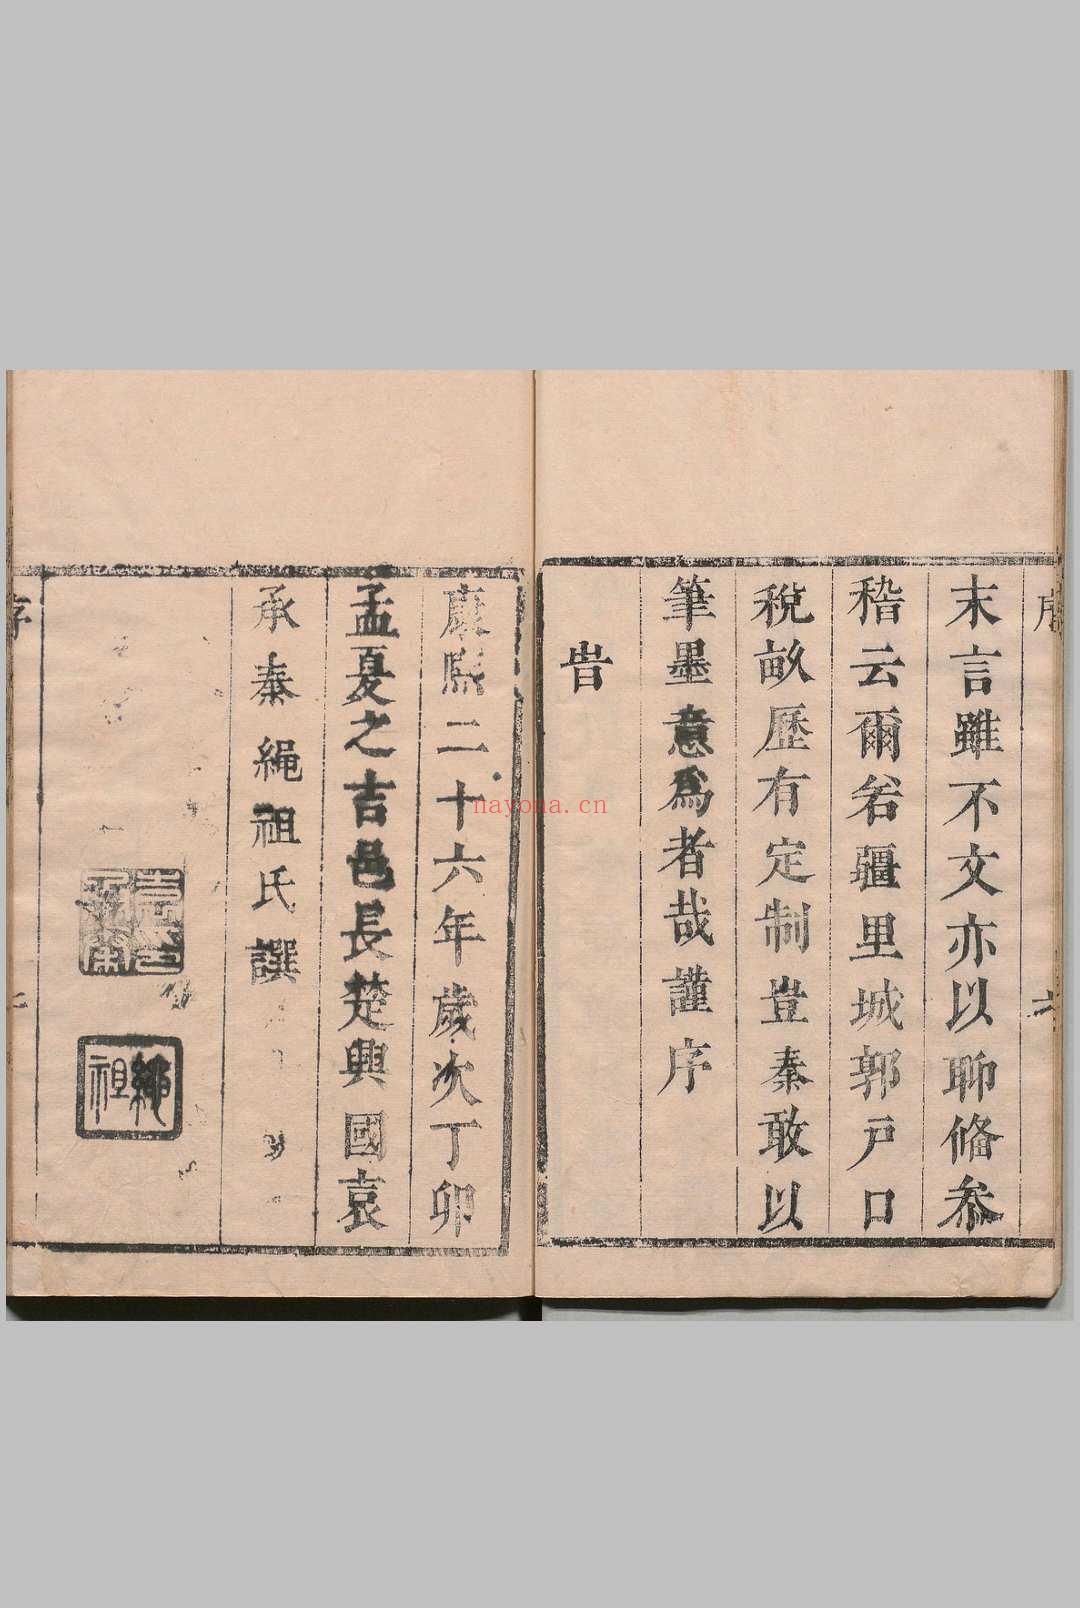 序
末言雖不文亦以聊俻叅
稽云爾若疆里城郭戸口
稅畝歷有定制豈秦敢以
筆墨意爲者哉謹序
旹
康熙二十六年歲次丁卯
孟夏之吉邑長楚興國袁
承秦繩祖氏譔
繩祖
序
nayona.cn